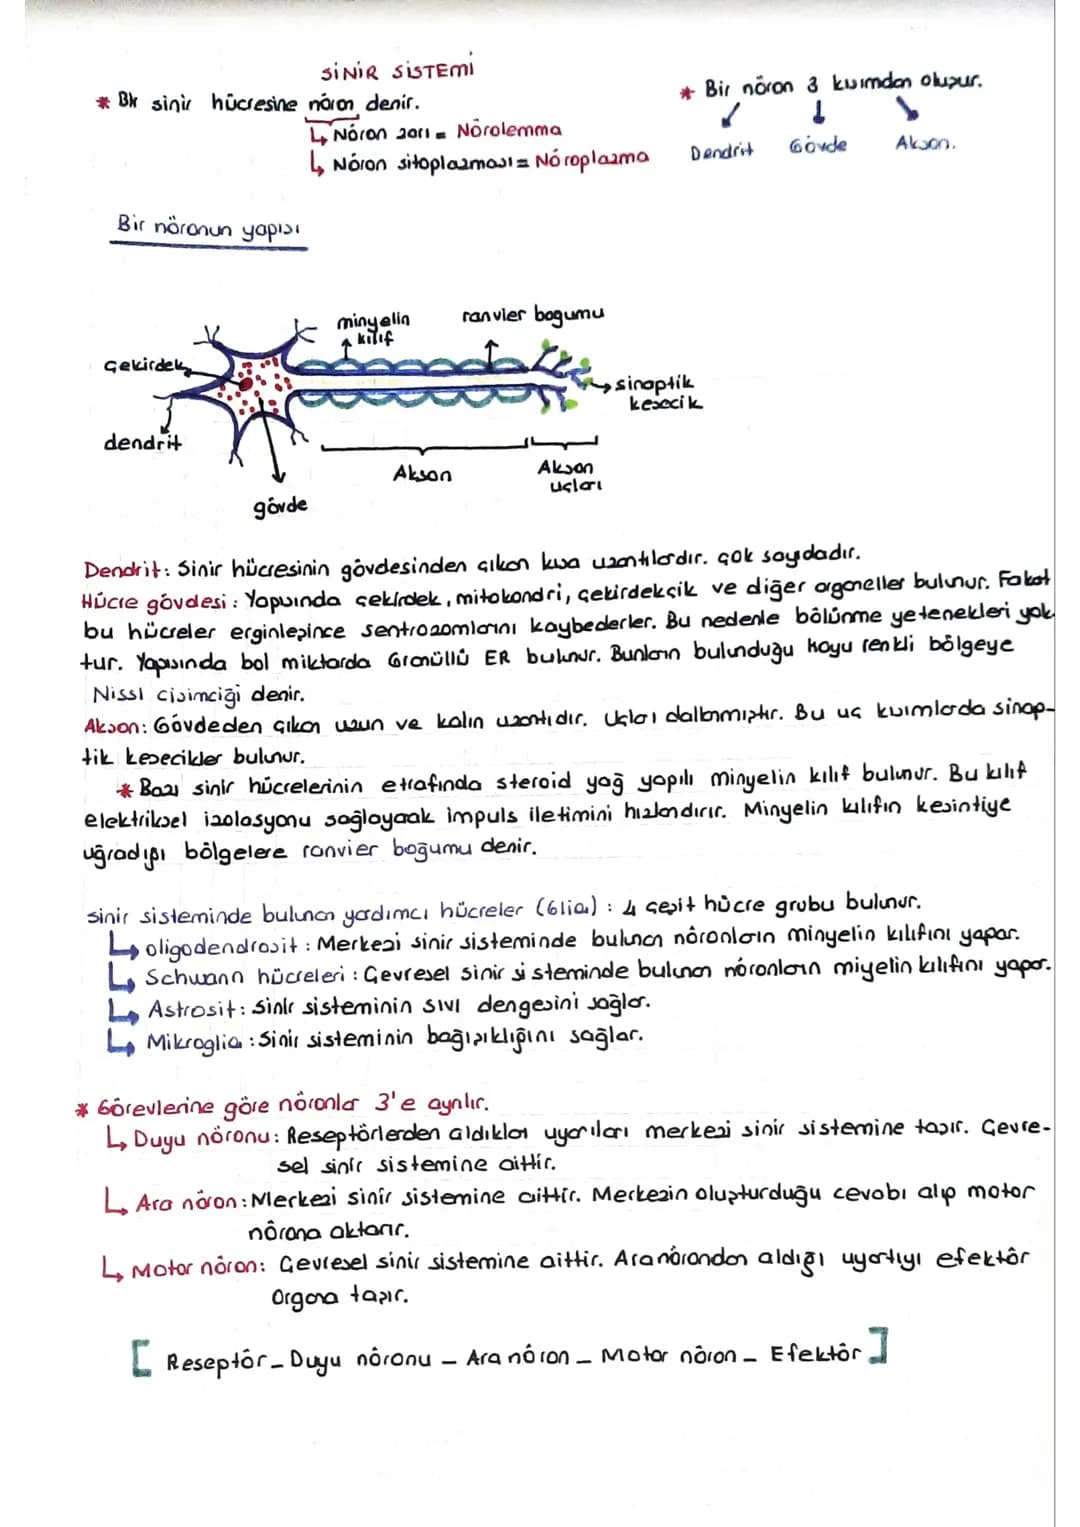 SİNİR SİSTEMİ
* Bir sinir hücresine nöron denir.
↳ Nöron zarı = Nörolemma
↳ Nöron sitoplazması = Nöroplazma
* Bir nöron 3 kısımdan oluşur.
Dendrit Gövde Akson.
Bir nöronun yapısı
minyelin kılıf
ranvier bogumu
Çekirdek
sinaptik kesecik
dendrit
gövde
Akson
Akson uçları
Dendrit: Sinir hücresinin gövdesinden çıkan kısa uzantılardır. Çok sayıdadır.
Hücre gövdesi: Yapısında çekirdek, mitokondri, çekirdekçik ve diğer organeller bulunur. Fakat
bu hücreler erginleşince sentrozomlarını kaybederler. Bu nedenle bölünme yetenekleri yok-
tur. Yapısında bol miktarda Granüllü ER bulunur. Bunların bulunduğu koyu renkli bölgeye
Nissl cisimciği denir.
Akson: Gövdeden çıkan uzun ve kalın uzantıdır. Uçları dallanmıştır. Bu uç kısımlarda sinap-
tik kesecikler bulunur.
* Bazı sinir hücrelerinin etrafında steroid yağ yapılı minyelin kılıf bulunur. Bu kılıf
elektriksel izolasyonu sağlayarak impuls iletimini hızlandırır. Minyelin kılıfın kesintiye
uğradığı bölgelere ranvier boğumu denir.
sinir sisteminde bulunan yardımcı hücreler (Glia) : 4 çeşit hücre grubu bulunur.
↳ oligodendrosit : Merkezi sinir sisteminde bulunan nöronların minyelin kılıfını yapar.
↳ Schwann hücreleri : Çevresel sinir sisteminde bulunan nöronların miyelin kılıfını yapar.
↳ Astrosit: Sinir sisteminin sıvı dengesini sağlar.
↳ Mikroglia : Sinir sisteminin bağışıklığını sağlar.
* Görevlerine göre nöronlar 3'e ayrılır.
↳ Duyu nöronu: Reseptörlerden aldıkları uyarıları merkezi sinir sistemine taşır. Çevre-
sel sinir sistemine aittir.
↳ Ara nöron: Merkezi sinir sistemine aittir. Merkezin oluşturduğu cevabı alıp motor
nörona aktarır.
↳ Motor nöron: Çevresel sinir sistemine aittir. Ara nörondan aldığı uyartıyı efektör
Organa taşır.
[ Reseptör - Duyu nöronu - Ara nöron - Motor nöron - Efektör ]